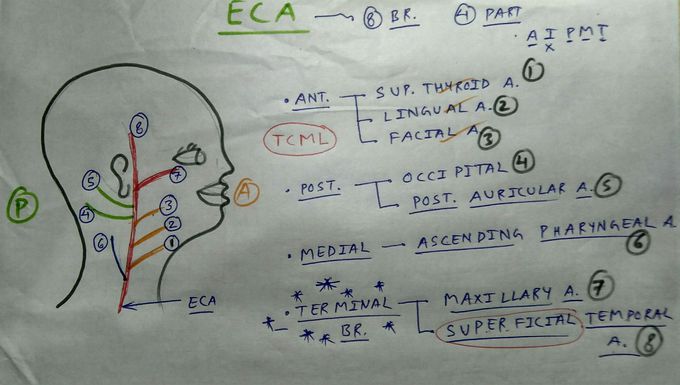 ECA → ⑧ BR. ④ PART
• A I P M T
x
• ANT. SUP. THYROID A. ①
LINGUAL A. ②
FACIAL A ③
TCML
• POST. OCCIPITAL ④
POST. AURICULAR A. ⑤
• MEDIAL — ASCENDING PHARYNGEAL A
⑥
• TERMINAL BR. MAXILLARY A. ⑦
SUPERFICIAL TEMPORAL
A. ⑧
⑧
⑦
⑤
④
③
②
⑥
①
P
A
ECA